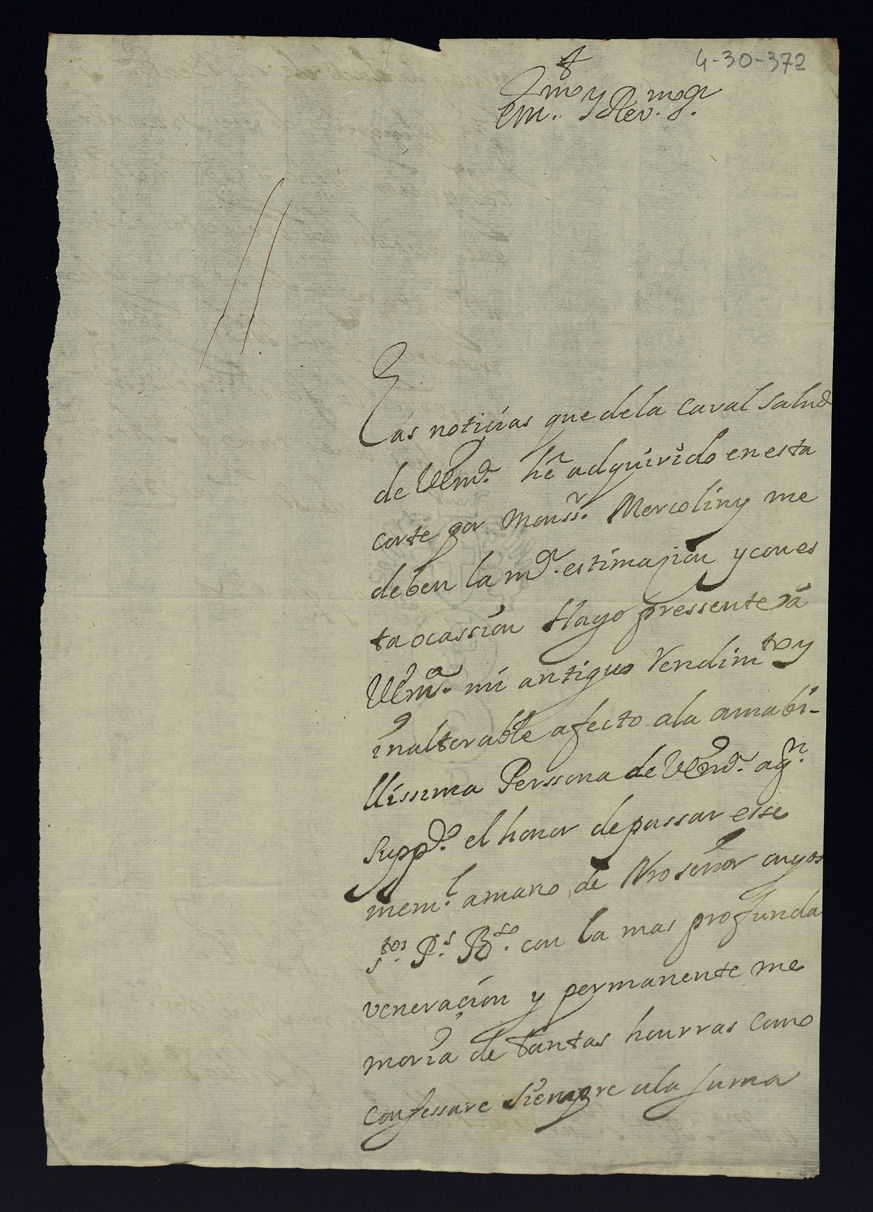 4-30-372
Em.mo y Rev.mo Sr
Las noticias que de la caval salud
de VEm.a hē adquirido en esta
corte por Monsr. Mercoliny me
deben la m.or estimaçion y con es
ta ocassion Hago pressente â
VEm.a mi antiguo Rendim.to y
inalterable afecto a la amabi-
llissima Perssona de VEm.a a q.n
supp.co el honor de passar esse
mem.l a mano de Nro señor cuyos
s.tos P.s B.so con la mas profunda
veneracion y permanente me
moria de tantas honrras como
confessare siempre a la suma